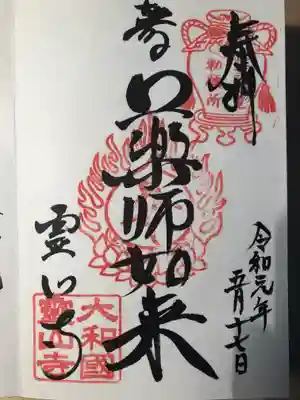 奉拝
薬師如来
霊山寺
令和元年
五月十七日
大和國
靈山寺